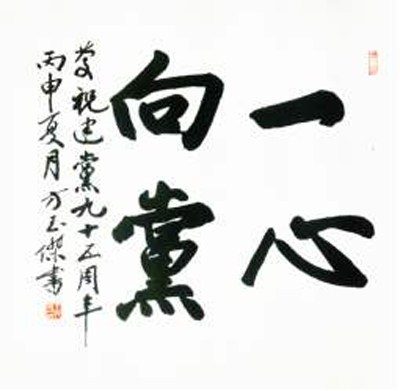 一心
向黨
慶祝建黨九十五周年
丙申夏月方玉傑書